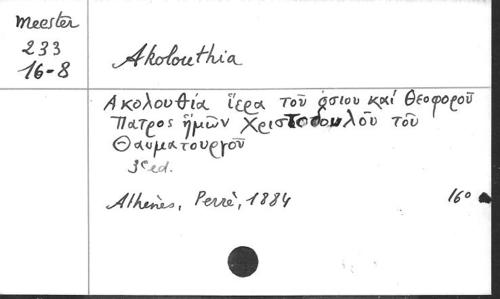 Meester
233
16-8
Akolouthia
Ακολουθία ἵερα τοῦ ὁσιου καί Θεοφοροῦ
Πατρος ἥμῶν Χριστοδουλοῦ τοῦ
Θαυματουργοῦ
3e ed.
Athènes, Perrè, 1884 16°